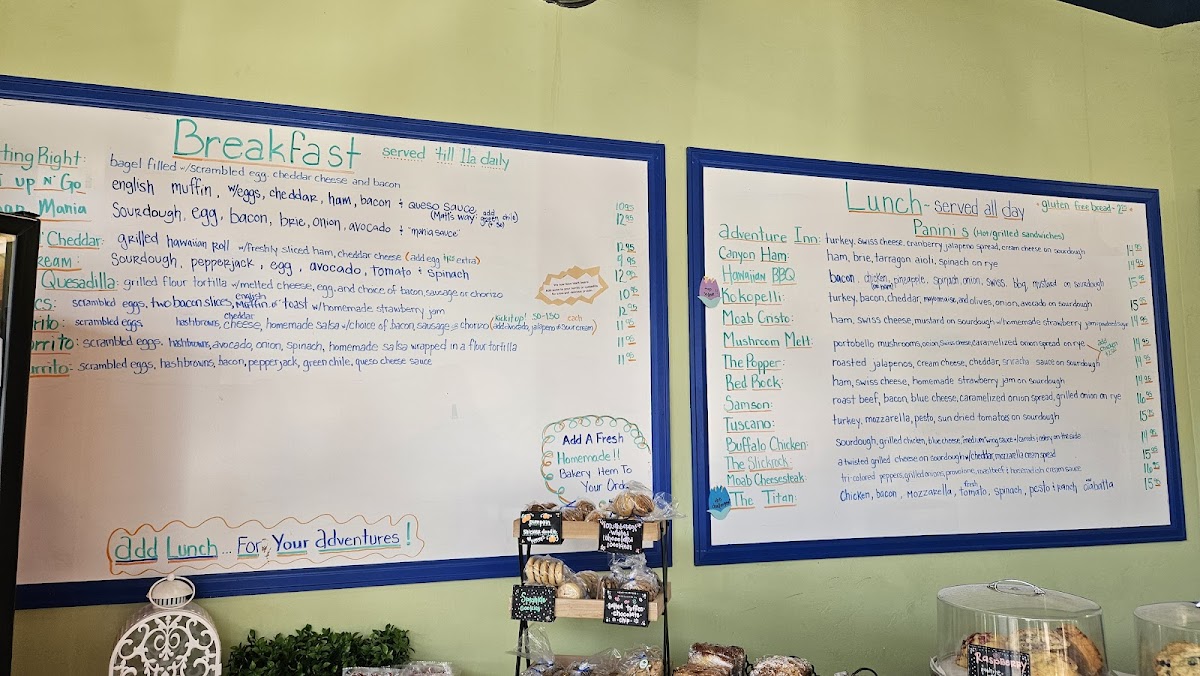 Breakfast served 'till 11a daily
ting Right: bagel filled w/scrambled egg, cheddar cheese and bacon
t up N' Go english muffin, w/eggs, cheddar, ham, bacon + queso sauce 10.95
(Matt's way: add green chile)
Mania Sourdough, egg, bacon, brie, onion, avocado + "mania sauce" 12.95
Cheddar: grilled hawaiian roll w/freshly sliced ham, cheddar cheese (add egg extra) 12.95
ream: Sourdough, pepperjack, egg, avocado, tomato + spinach 9.95
Quesadilla: grilled flour tortilla w/melted cheese, egg, and choice of bacon, sausage or chorizo 12.95
cs: scrambled eggs, two bacon slices, english muffin or toast w/homemade strawberry jam 10.95
Kick it up! .50-1.50 each
rito: scrambled eggs, hashbrowns, cheddar cheese, homemade salsa w/choice of bacon, sausage or chorizo (add avocado, jalapeño + sour cream) 11.95
rrito: scrambled eggs, hashbrowns, avocado, onion, spinach, homemade salsa wrapped in a flour tortilla 11.95
urrito: scrambled eggs, hashbrowns, bacon, pepperjack, green chile, queso cheese sauce 11.95
Add A Fresh
Homemade!!
Bakery Item To
Your Order
add Lunch ... For Your adventures!
Lunch - served all day
gluten free bread
Panini's (Hot/grilled sandwiches)
adventure Inn: turkey, swiss cheese, cranberry jalapeno spread, cream cheese on sourdough 14.95
Canyon Ham: ham, brie, tarragon aioli, spinach on rye 14.95
Hawaiian BBQ bacon, chicken, pineapple, spinach, onion, swiss, bbq, mustard on sourdough 15.95
Kokopelli: turkey, bacon, cheddar, mayonnaise, and olives, onion, avocado on sourdough 15.95
Moab Cristo: ham, swiss cheese, mustard on sourdough w/homemade strawberry jam + powdered sugar 14.95
Mushroom Melt: portobello mushrooms, onion, swiss cheese, caramelized onion spread on rye 14.95
add chicken
The Popper: roasted jalapenos, cream cheese, cheddar, sriracha sauce on sourdough 14.95
Red Rock: ham, swiss cheese, homemade strawberry jam on sourdough 14.95
Samson: roast beef, bacon, blue cheese, caramelized onion spread, grilled onion on rye 16.95
Tuscano: turkey, mozzarella, pesto, sun dried tomatoes on sourdough 15.95
Buffalo Chicken: sourdough, grilled chicken, blue cheese, "medium" wing sauce + carrots, celery on the side 14.95
The Slickrock: a twisted grilled cheese on sourdough w/cheddar, mozzarella onion spread 15.95
Moab Cheesesteak: tri-colored peppers, grilled onions, provolone, roast beef + horseradish cream sauce 16.95
The Titan: Chicken, bacon, mozzarella, fresh tomato, spinach, pesto + ranch on ciabatta 15.95
pumpkin
salted toffee
chocolate
chip
RASPBERRY